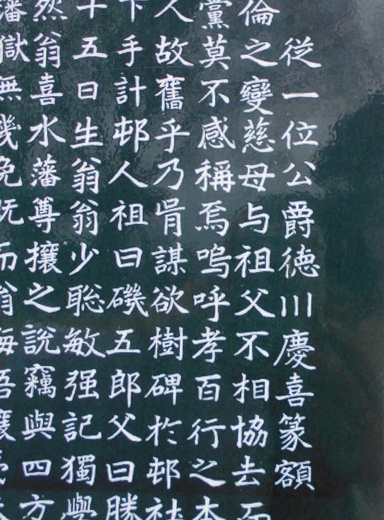 從一位公爵德川慶喜篆額
倫之變慈母与祖父不相協去而
黨莫不感稱焉嗚呼孝百行之本
人故舊乎乃胥謀欲樹碑於邨社
下手計邨人祖曰磯五郎父曰勝
十五日生翁翁少聡敏强記獨學
然翁喜水藩尊攘之說竊與四方
藩獄無幾免既而翁悔悟攘